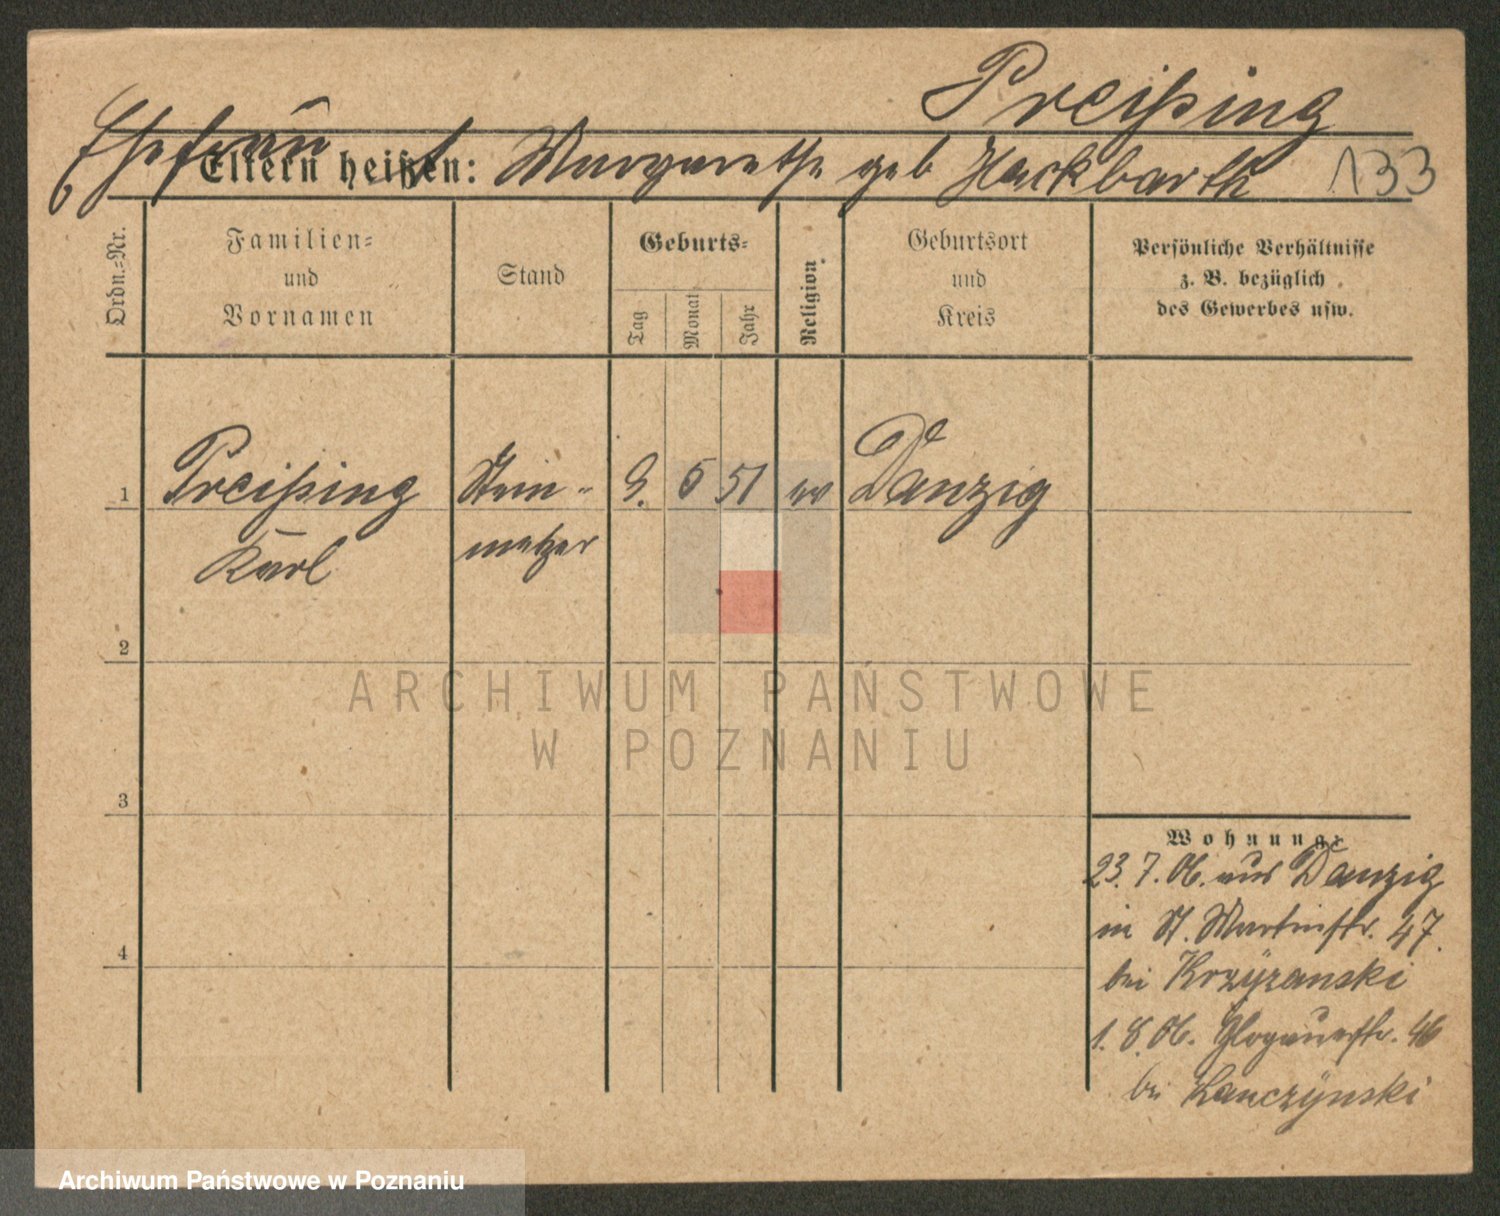 Preißing
Ehefrau
Eltern heißen: Margarethe geb Hackbarth 133
Ordn.-Nr.
Familien-
und
Vornamen
Stand
Geburts-
Tag
Monat
Jahr
Religion
Geburtsort
und
Kreis
Persönliche Verhältnisse
z. B. bezüglich
des Gewerbes usw.
1 Preißing Stein- 9. 5 51 ev Danzig
Karl metzer
2
3
4
ARCHIWUM PAŃSTWOWE
W POZNANIU
Wohnung:
23. 7. 06. aus Danzig
in St. Martinstr. 47.
bei Krzyzanski
1. 8. 06. Glogauerstr. 46
bei
Archiwum Państwowe w Poznaniu